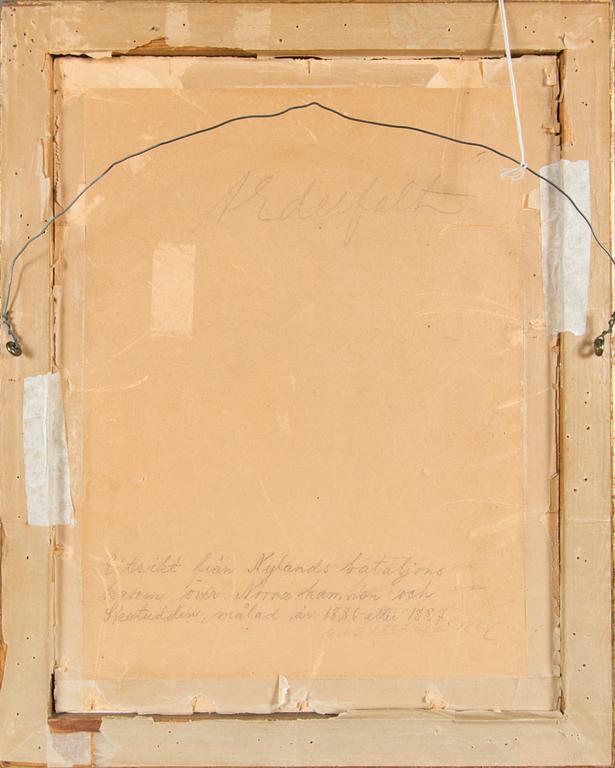 A Edelfelt
Utsikt från Nylands bataljons
kasern över Norra hamnen och
Skatudden, målad år 1886 eller 1887
1887